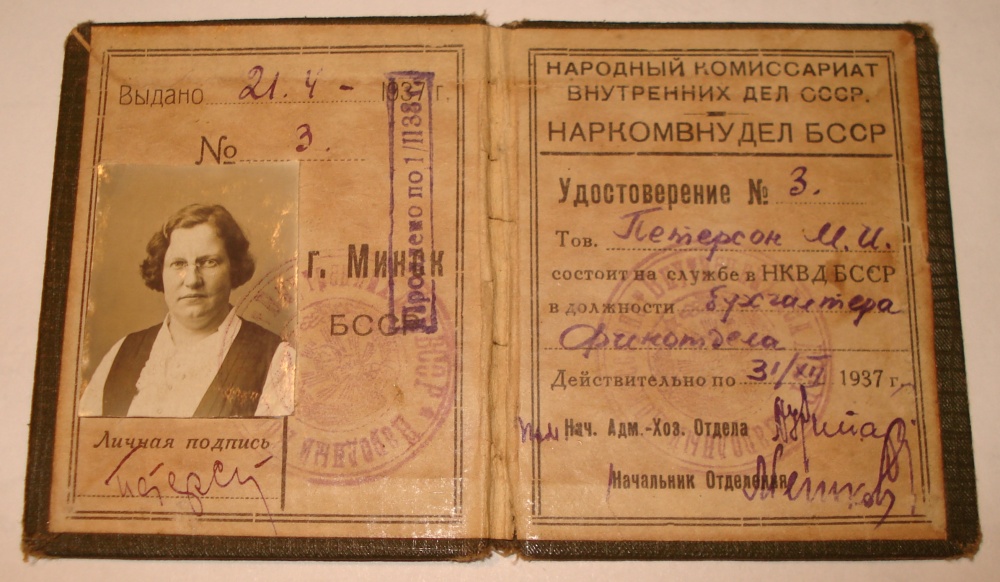 Выдано 21.4 - 1937 г.
№ 3.
Продлено по 1/II 38 г.
г. Минск
БССР
Личная подпись
НАРОДНЫЙ КОМИССАРИАТ
ВНУТРЕННИХ ДЕЛ СССР.
НАРКОМВНУДЕЛ БССР
Удостоверение № 3.
Тов. Петерсон М.И.
состоит на службе в НКВД БССР
в должности бухгалтера
Финотдела
Действительно по 31/XII 1937 г.
Нач. Адм.-Хоз. Отдела
Начальник Отделения